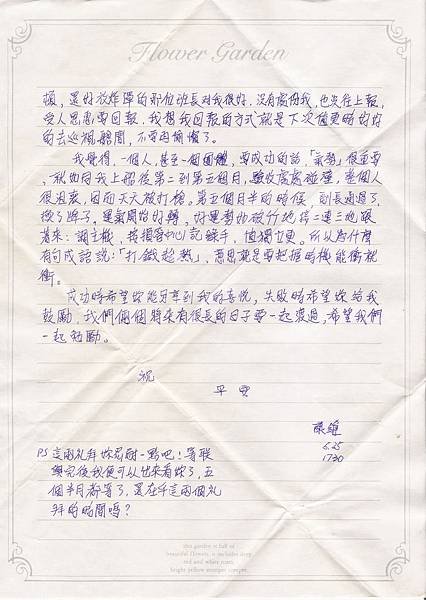 Flower Garden
頓,還好放炸彈的那位班長對我很好,沒有處份我,也沒往上報,
受人恩惠要回報,我想我回報的方式就是下次值更時好好
的去巡視艙間,不要再偷懶了。
我覺得,一個人,甚至一個團體,要成功的話,「氣勢」很重要
,就如同我上船後第二到第五個月,處處碰壁,整個人
很沮喪,因而天天被打槍。第五個月半的時候,剛考過了,
換了牌子,運氣開始好轉,好運勢如破竹地接二連三地跟
著來:調主機,我損管中心記錄手,值獨立更。所以為什麼
有句成語說:「打鐵趁熱」,意思就是要把握時機能衝就
衝。
成功時希望妳能分享到我的喜悅,失敗時希望妳給我
鼓勵,我們倆個將來有很長的日子要一起渡過,希望我們
一起勉勵。
祝
平安
6.25
1730
PS 這兩禮拜妳忍耐一點吧!等聯
興完後我便可以出來看妳了,五
個半月都等了,還在乎這兩個禮
拜的時間嗎?
this garden is full of
beautiful flowers. it includes deep
red and white roses.
bright yellow